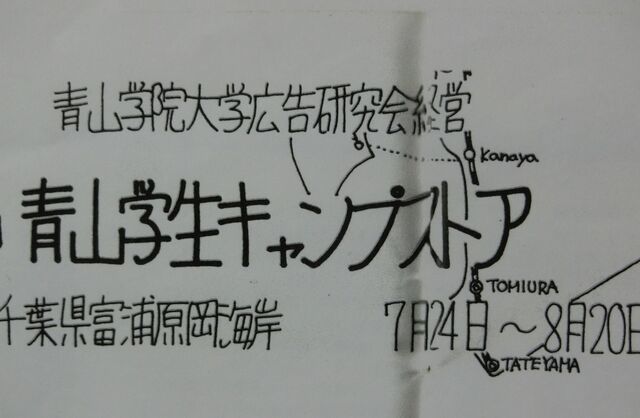 青山学院大学広告研究会経営
Kanaya
青山学生キャンプストア
TOMIURA
千葉県富浦原岡海岸 7月24日〜8月20日
TATEYAMA